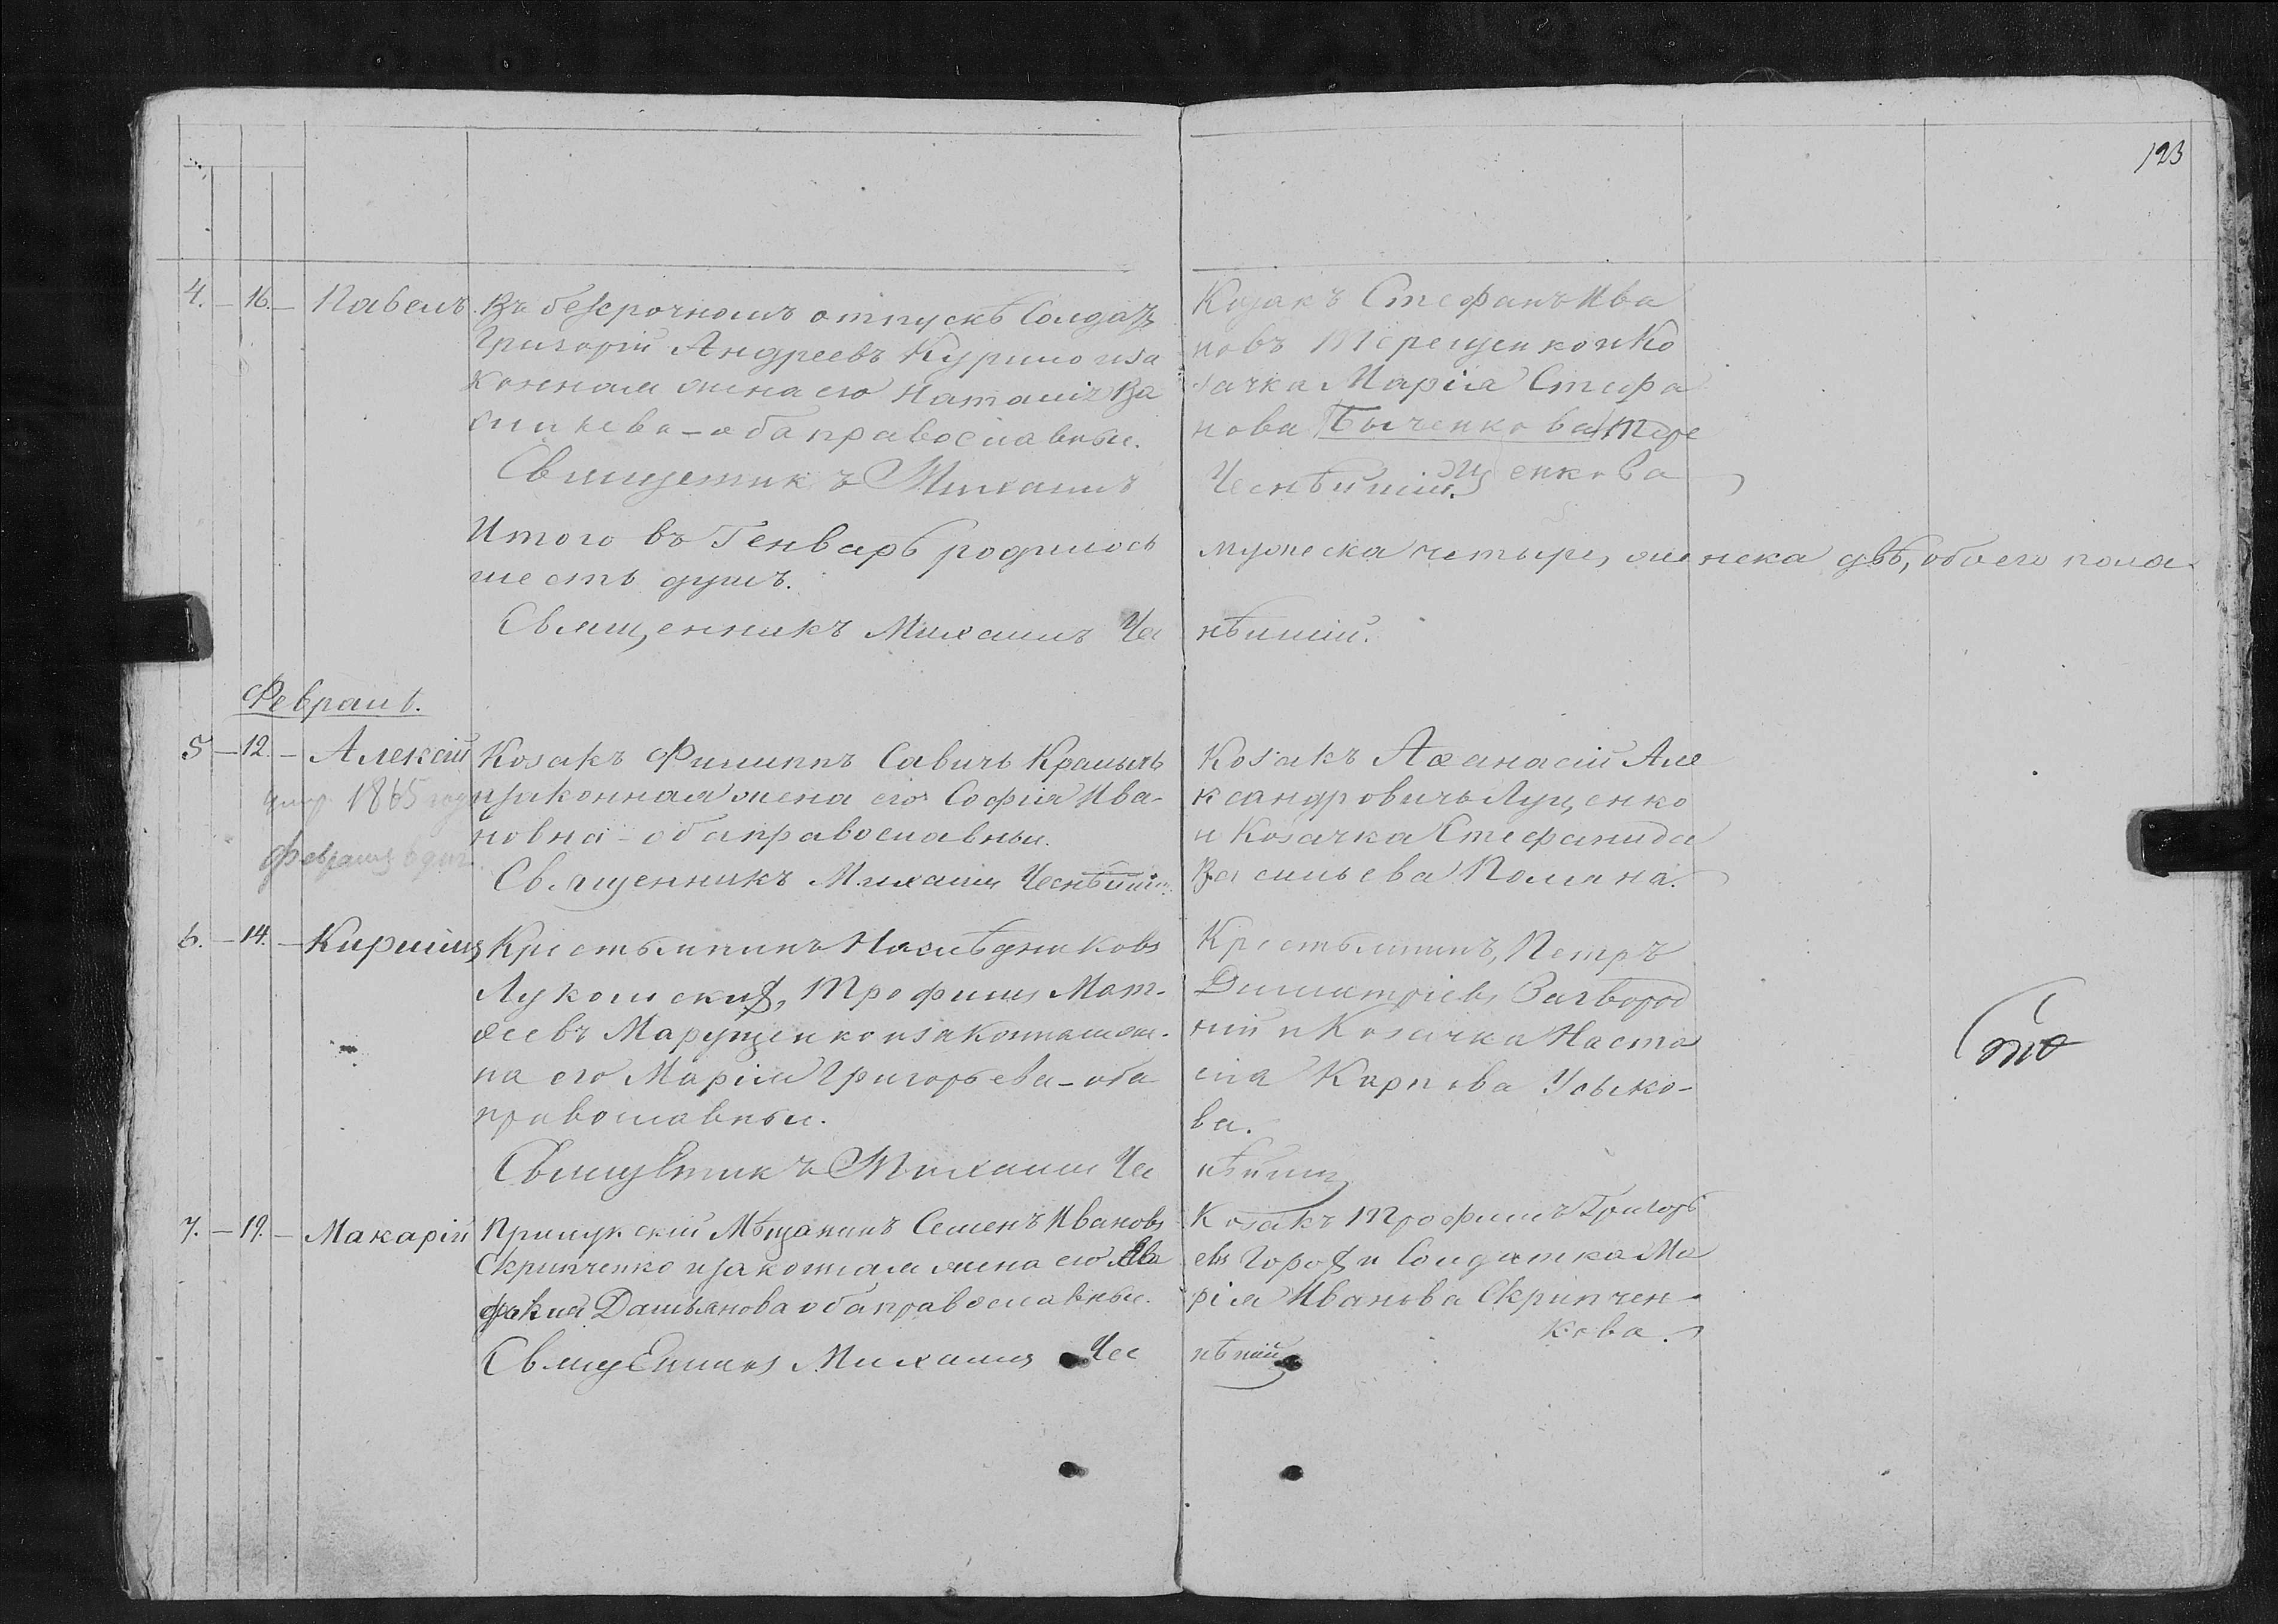 123
4. – 16. – Павелъ. Въ безсрочномъ отпускѣ Солдатъ
Григорій Андреевъ Курило и за
конная жена его Наталія Ва
сильева – оба православные.
Священникъ Михаилъ
Козакъ Стефанъ Ива
новъ Терещенко и Ко
зачка Марія Стефа
нова Быченкова Тере
щенкова
Чеснѣйшій.
Итого въ Генварѣ родилось
мужеска четыре, женска двѣ, обоего пола
шесть душъ.
Священникъ Михаилъ Чес
нѣйшій.
Февраль.
5 – 12. – Алексій
умер 1865 года
февраля
Козакъ Филиппъ Савичъ
и законная жена его Софія Ива-
новна – оба православные.
Священникъ Михаилъ Чеснѣйшій.
Козакъ Аѳанасій Але
ксандровичъ Луценко
и Козачка Стефанида
Васильева
6. – 14. – Кириллъ Крестьянинъ Наслѣдниковъ
Трофимъ Мат-
ѳеевъ Марущенко и законная же-
на его Марія Григорьева – оба
православные.
Священникъ Михаилъ Чес
Крестьянинъ, Петръ
Димитріевъ Загород
ній и Козачка Наста
сія Карпова Усыко-
ва.
нѣйшій
7. – 19. – Макарій Прилукскій Мѣщанинъ Семенъ Ивановъ
Скрипченко и законная жена его Ев
докія Дамьянова оба православные.
Священникъ Михаилъ Чес
Козакъ Трофимъ Григорь
евъ и Солдатка Ма
рія Иванова Скрипчен-
кова.
нѣйшій